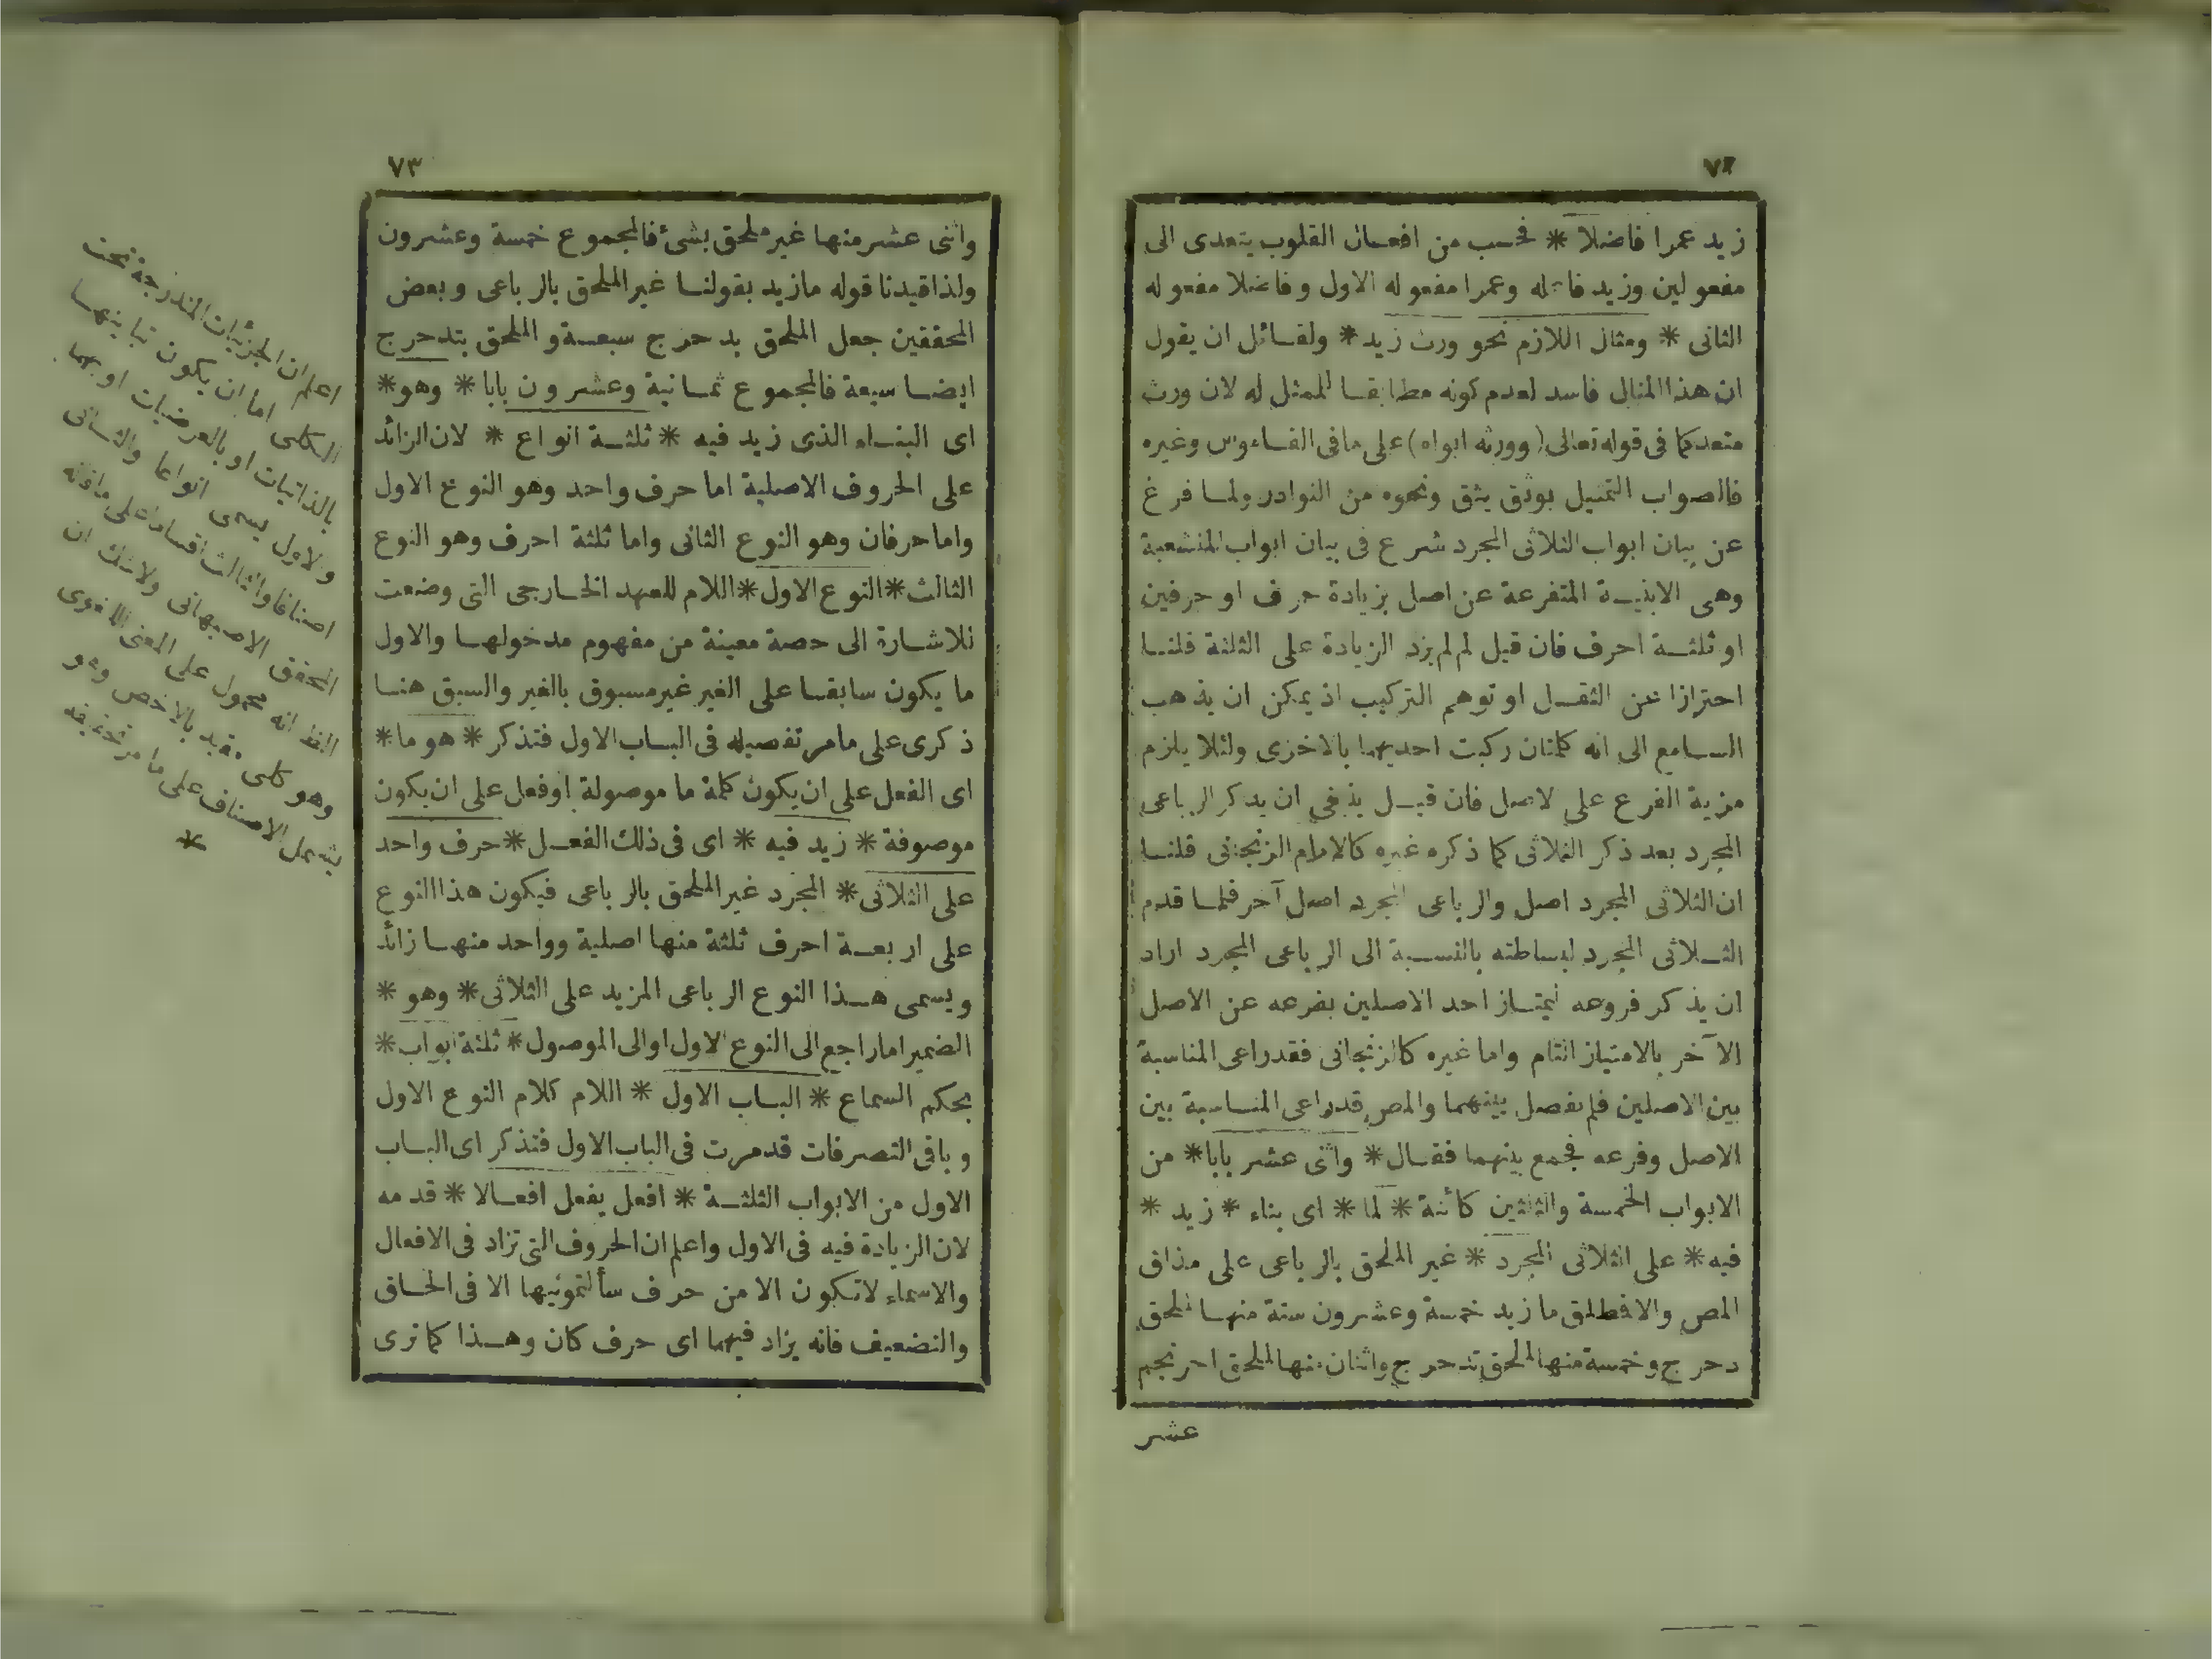 ٧٢
زيد عمرا فاضلا * فحسب من افعال القلوب يتعدى الى
مفعولين وزيد فاعله وعمرا مفعوله الاول وفاضلا مفعوله
الثانى * ومثال اللازم نحو ورث زيد * ولقائل ان يقول
ان هذا المثال فاسد لعدم كونه مطابقا للممثل له لان ورث
متعد كما فى قوله تعالى (وورثه ابواه) على ما فى القاموس وغيره
فالصواب التمثيل بوثق يثق ونحوه من النوادر ولما فرغ
عن بيان ابواب الثلاثى المجرد شرع فى بيان ابواب المنشعبة
وهى الابنية المتفرعة عن اصل بزيادة حرف او حرفين
او ثلثة احرف فان قيل لم لم يزد الزيادة على الثلثة قلنا
احترازا عن الثقل او توهم التركيب اذ يمكن ان يذهب
السامع الى انه كلمتان ركبت احديهما بالاخرى ولئلا يلزم
مزية الفرع على لاصل فان قيل ينبغى ان يذكر الرباعى
المجرد بعد ذكر الثلاثى كما ذكره غيره كالامام الزنجانى قلنا
ان الثلاثى المجرد اصل والرباعى المجرد اصل آخر فلما قدم
الثلاثى المجرد لبساطته بالنسبة الى الرباعى المجرد اراد
ان يذكر فروعه ليمتاز احد الاصلين بفرعه عن الاصل
الآخر بالامتياز التام واما غيره كالزنجانى فقد راعى المناسبة
بين الاصلين فلم يفصل بينهما والمص قد راعى المناسبة بين
الاصل وفرعه فجمع بينهما فقال * واثنى عشر بابا * من
الابواب الخمسة والثلثين كائنة * لما * اى بناء * زيد *
فيه * على الثلاثى المجرد * غير الملحق بالرباعى على مذاق
المص والا فمطلق ما زيد خمسة وعشرون ستة منها ملحق
دحرج وخمسة منها الملحق تدحرج واثنان منها الملحق احرنجم
عشر
٧٣
واثنى عشر منها غير ملحق بشئ فالمجموع خمسة وعشرون
ولذا قيدنا قوله ما زيد بقولنا غير الملحق بالرباعى وبعض
المحققين جعل الملحق بدحرج سبعة والملحق بتدحرج
ايضا سبعة فالمجموع ثمانية وعشرون بابا * وهو *
اى البناء الذى زيد فيه * ثلثة انواع * لان الزائد
على الحروف الاصلية اما حرف واحد وهو النوع الاول
واما حرفان وهو النوع الثانى واما ثلثة احرف وهو النوع
الثالث * النوع الاول * اللام للعهد الخارجى التى وضعت
للاشارة الى حصة معينة من مفهوم مدخولها والاول
ما يكون سابقا على الغير غير مسبوق بالغير والسبق هنا
ذكرى على ما مر تفصيله فى الباب الاول فتذكر * هو ما *
اى الفعل على ان يكون كلمة ما موصولة او فعل على ان يكون
موصوفة * زيد فيه * اى فى ذلك الفعل * حرف واحد
على الثلاثى * المجرد غير الملحق بالرباعى فيكون هذا النوع
على اربعة احرف ثلثة منها اصلية وواحد منها زائد
ويسمى هذا النوع الرباعى المزيد على الثلاثى * وهو *
الضمير اما راجع الى النوع الاول او الى الموصول * ثلثة ابواب *
بحكم السماع * الباب الاول * اللام كلام النوع الاول
وباقى التصرفات قد مرت فى الباب الاول فتذكر اى الباب
الاول من الابواب الثلثة * افعل يفعل افعالا * قدمه
لان الزيادة فيه فى الاول واعلم ان الحروف التى تزاد فى الافعال
والاسماء لا تكون الا من حرف سألتمونيها الا فى الحاق
والتضعيف فانه يزاد فيهما اى حرف كان وهذا كما ترى
اعلم ان الجزئيات المندرجة تحت
الكلى اما ان يكون تباينها
بالذاتيات او بالعرضيات او بهما
والاول يسمى انواعا والثانى
اصنافا والثالث اقساما على ما قاله
المحقق الاصبهانى ولا شك ان
انه محمول على المعنى اللغوى
وهو كلى مقيد بالاخص وهو
يشمل الاصناف على ما مر تحقيقه
*